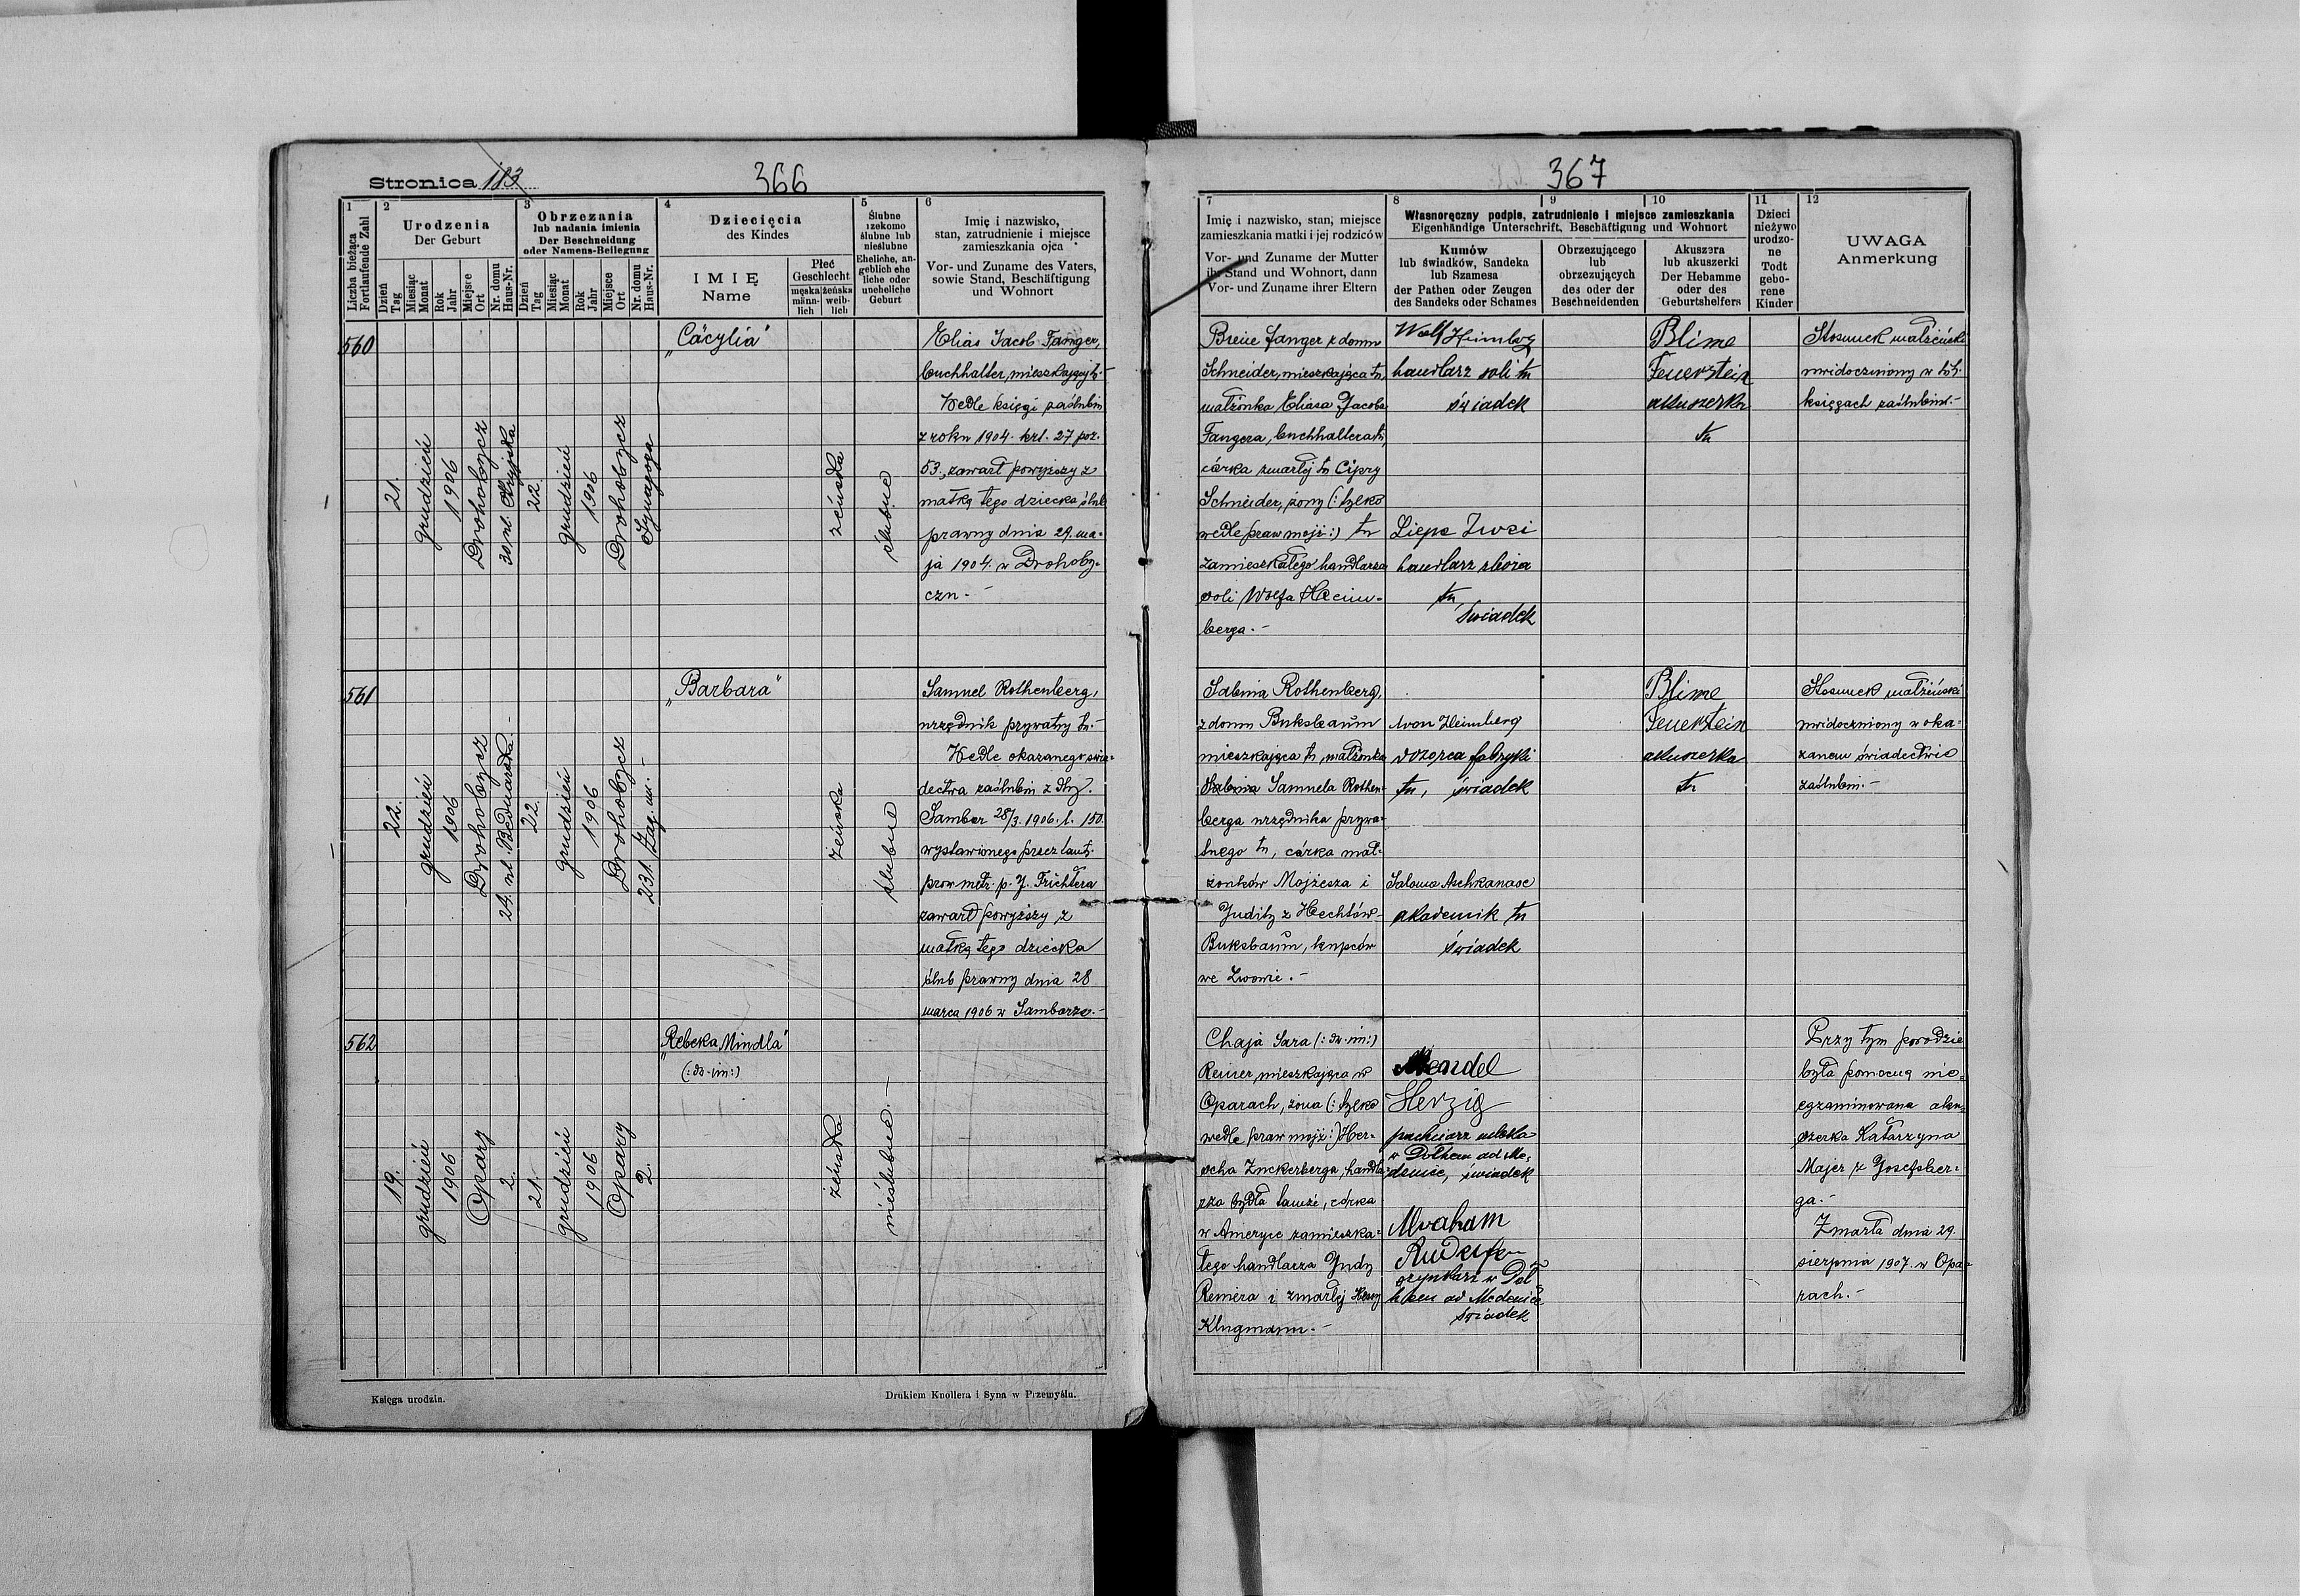 Stronica 183
366
1
Liczba bieżąca
Fortlaufende Zahl
2
Urodzenia
Der Geburt
Dzień
Tag
Miesiąc
Monat
Rok
Jahr
Miejsce
Ort
Nr. domu
Haus-Nr.
3
Obrzezania
lub nadania imienia
Der Beschneidung
oder Namens-Beilegung
Dzień
Tag
Miesiąc
Monat
Rok
Jahr
Miejsce
Ort
Nr. domu
Haus-Nr.
4
Dziecięcia
des Kindes
IMIĘ
Name
Płeć
Geschlecht
męska
männ-
lich
żeńska
weib-
lich
5
Ślubne
rzekomo
ślubne lub
nieślubne
Eheliche, an-
geblich ehe
liche oder
uneheliche
Geburt
6
Imię i nazwisko,
stan, zatrudnienie i miejsce
zamieszkania ojca
Vor- und Zuname des Vaters,
sowie Stand, Beschäftigung
und Wohnort
560
21.
grudzień
1906
Drohobycz
30, ul. Stryjska
22
grudzień
1906
Drohobycz
Synagoga
„Cäcylia"
żeńska
ślubne
Elias Jacob Fanger,
buchhalter, mieszkający tu.-
Wedle księgi zaślubin
z roku 1904. krt. 27 poz.
53., zawarł powyższy z
matką tego dziecka ślub
prawny dnia 29. ma-
ja 1904. w Drohoby-
czu.-
561
22.
grudzień
1906
Drohobycz
24. ul. Bednarska.-
22.
grudzień
1906
Drohobycz
231. Zag. m.-
„Barbara"
żeńska
ślubne
Samuel Rothenberg,
urzędnik prywatny tu.-
Wedle okazanego świa-
dectwa zaślubin z dty.
Sambor 28/3. 1906. l. 150.
wystawionego przez tamt.
prow. metr. p. J. Frichtera
zawarł powyższy z
matką tego dziecka
ślub prawny dnia 28
marca 1906 w Samborze.-
562
19.
grudzień
1906
Opary
2.
21.
grudzień
1906
Opary
2.
„Rebeka Mindla"
(: dw. im:)
żeńska
nieślubne.-
Księga urodzin.
Drukiem Knollera i Syna w Przemyślu.
367
7
Imię i nazwisko, stan, miejsce
zamieszkania matki i jej rodziców
Vor- und Zuname der Mutter
ihr Stand und Wohnort, dann
Vor- und Zuname ihrer Eltern
8
9
10
Własnoręczny podpis, zatrudnienie i miejsce zamieszkania
Eigenhändige Unterschrift, Beschäftigung und Wohnort
Kumów
lub świadków, Sandeka
lub Szamesa
der Pathen oder Zeugen
des Sandeks oder Schames
Obrzezującego
lub
obrzezujących
des oder der
Beschneidenden
Akuszera
lub akuszerki
Der Hebamme
oder des
Geburtshelfers
11
Dzieci
nieżywo
urodzo-
ne
Todt
gebo-
rene
Kinder
12
UWAGA
Anmerkung
Breie Fanger z domu
Schneider, mieszkająca tu,
małżonka Eliasa Jacoba
Fangera, buchhaltera tu,
córka zmarłej tu Cipry
Schneider, żony (: tylko
wedle praw mojż:) tu
zamieszkałego handlarza
soli Wolfa Heim-
berga.-
Wolf Heimberg
handlarz soli tu
świadek
handlarz zboża
tu,
świadek
Blime
Feuerstein
akuszerka
tu
Stosunek małżeński
uwidoczniony w tut.
księgach zaślubin.-
Sabina Rothenberg,
z domu Buksbaum
mieszkająca tu, małżonka
Samuela Rothen-
berga urzędnika prywa-
tnego tu, córka mał-
żonków Mojżesza i
Judity z Hechtów
Buksbaum, kupców
we Lwowie.-
Aron Heimberg
dozorca fabryki
tu, świadek
Salomo Aschkanase
akademik tu
świadek
Blime
Feuerstein
akuszerka
tu
Stosunek małżeński
uwidoczniony w oka-
zanem świadectwie
zaślubin.-
Chaja Sara (: dw. im:)
Reiner, mieszkająca w
Oparach, żona (: tylko
wedle praw mojż:) Her-
scha Zuckerberga, handla-
rza bydła tamże, córka
w Ameryce zamieszka-
łego handlarza Judy
Reinera i zmarłej
Klugmann.-
Mendel
Herzig
pachciarz mleka
w Dołhem ad Me-
denice, świadek
Abraham
szynkarz w Doł
hem ad Medenice
świadek
Przy tym porodzie
była pomocną nie-
egzaminowana aku-
szerka Katarzyna
Majer z Josefsber-
ga.-
Zmarła dnia 29.
sierpnia 1907. w Opa-
rach.-